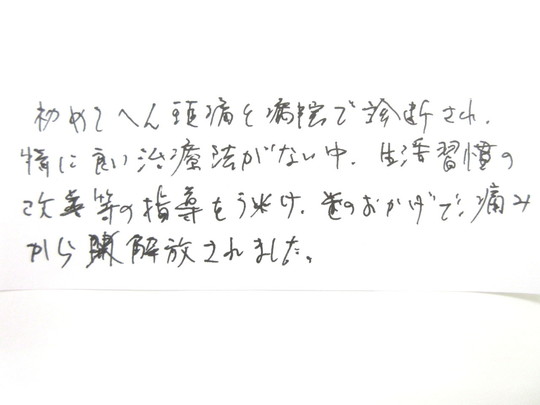 初めてへん頭痛と病院で診断され、
特に良い治療法がない中、生活習慣の
改善等の指導をうけ、そのおかげで、痛み
から解放されました。